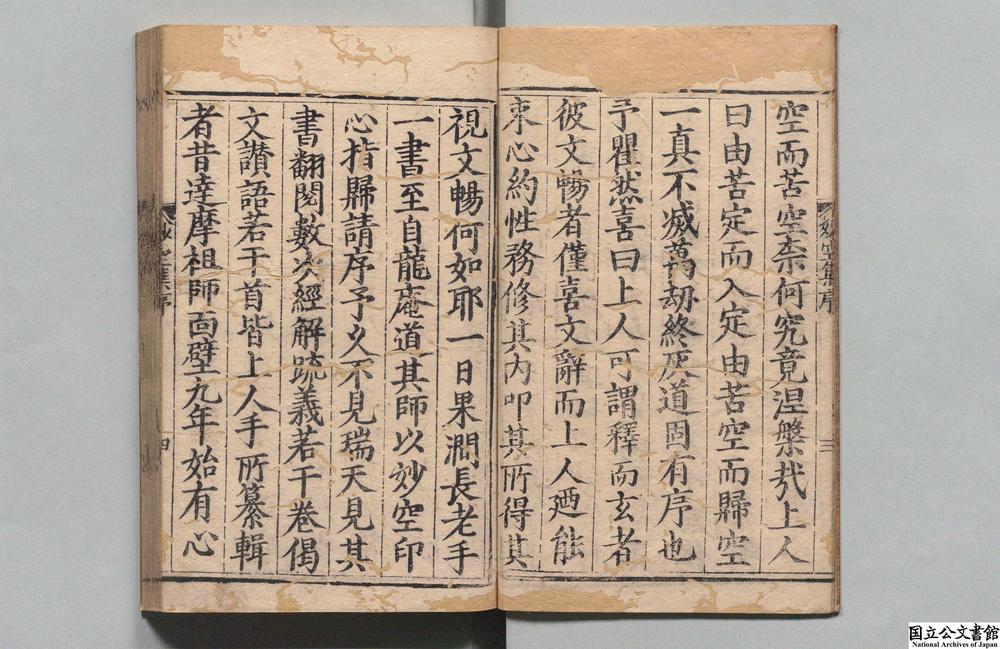 空而苦空柰何究竟涅槃哉上人
曰由苦定而入定由苦空而歸空
一真不滅萬劫終灰道固有序也
予瞿然喜曰上人可謂釋而玄者
彼文暢者僅喜文辭而上人廼能
束心約性務修其内叩其所得其
妙空集序
三
視文暢何如耶一日果澗長老手
一書至自龍庵道其師以妙空印
心指歸請序予久不見瑞天見其
書翻閱數次經解疏義若干卷偈
文讃語若干首皆上人手所纂輯
者昔達摩祖師面壁九年始有心
妙空集序
四
国立公文書館
National Archives of Japan